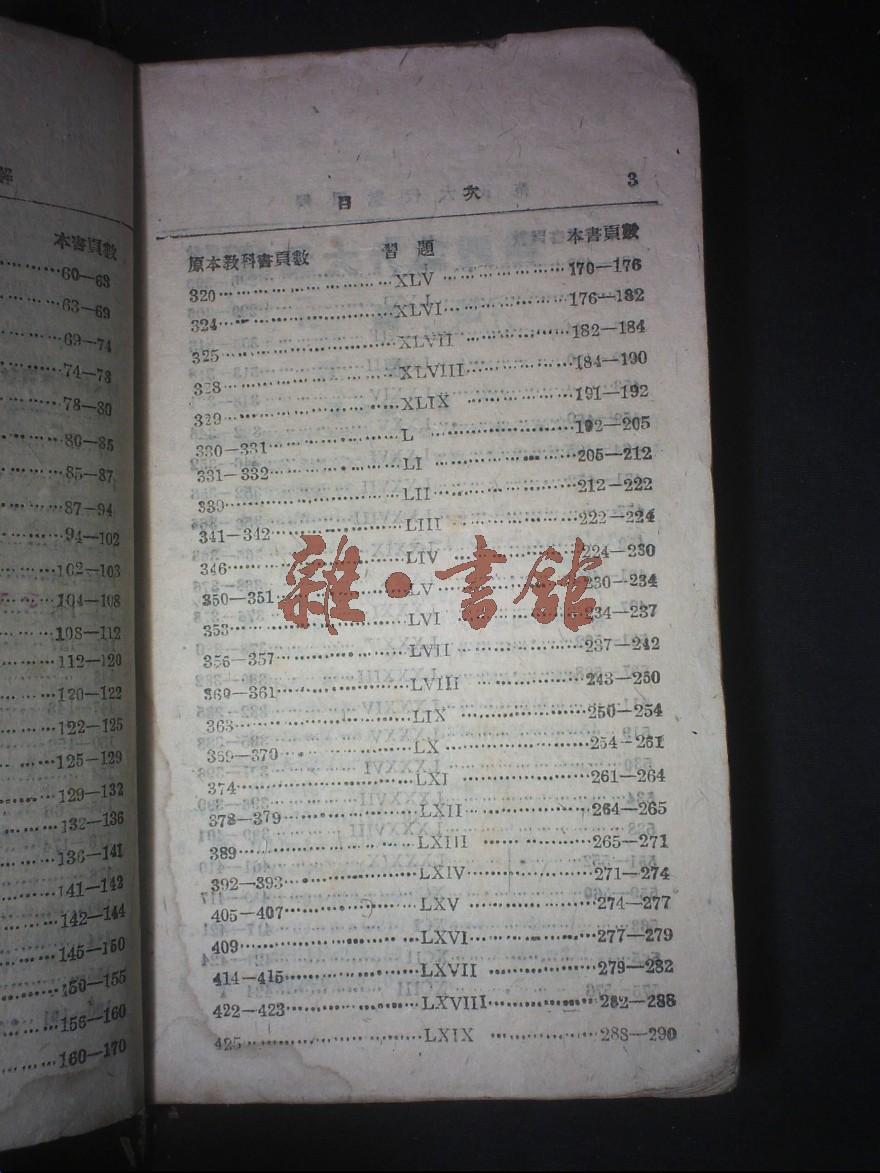 解
本書頁數
60—63
63—69
69—74
74—78
78—80
80—85
85—87
87—94
94—102
102—103
104—108
108—112
112—120
120—122
122—125
125—129
129—132
132—136
136—141
141—142
142—144
145—150
150—155
156—160
160—170
目次 3
原本敎科書頁數 習題 本書頁數
320 XLV 170—176
324 XLVI 176—182
325 XLVII 182—184
328 XLVIII 184—190
329 XLIX 191—192
330—331 L 192—205
331—332 LI 205—212
339 LII 212—222
341—342 LIII 222—224
346 LIV 224—230
350—351 LV 230—234
353 LVI 234—237
356—357 LVII 237—242
360—361 LVIII 243—250
363 LIX 250—254
369—370 LX 254—261
374 LXI 261—264
378—379 LXII 264—265
389 LXIII 265—271
392—393 LXIV 271—274
405—407 LXV 274—277
409 LXVI 277—279
414—415 LXVII 279—282
422—423 LXVIII 282—288
425 LXIX 288—290
雜·書館